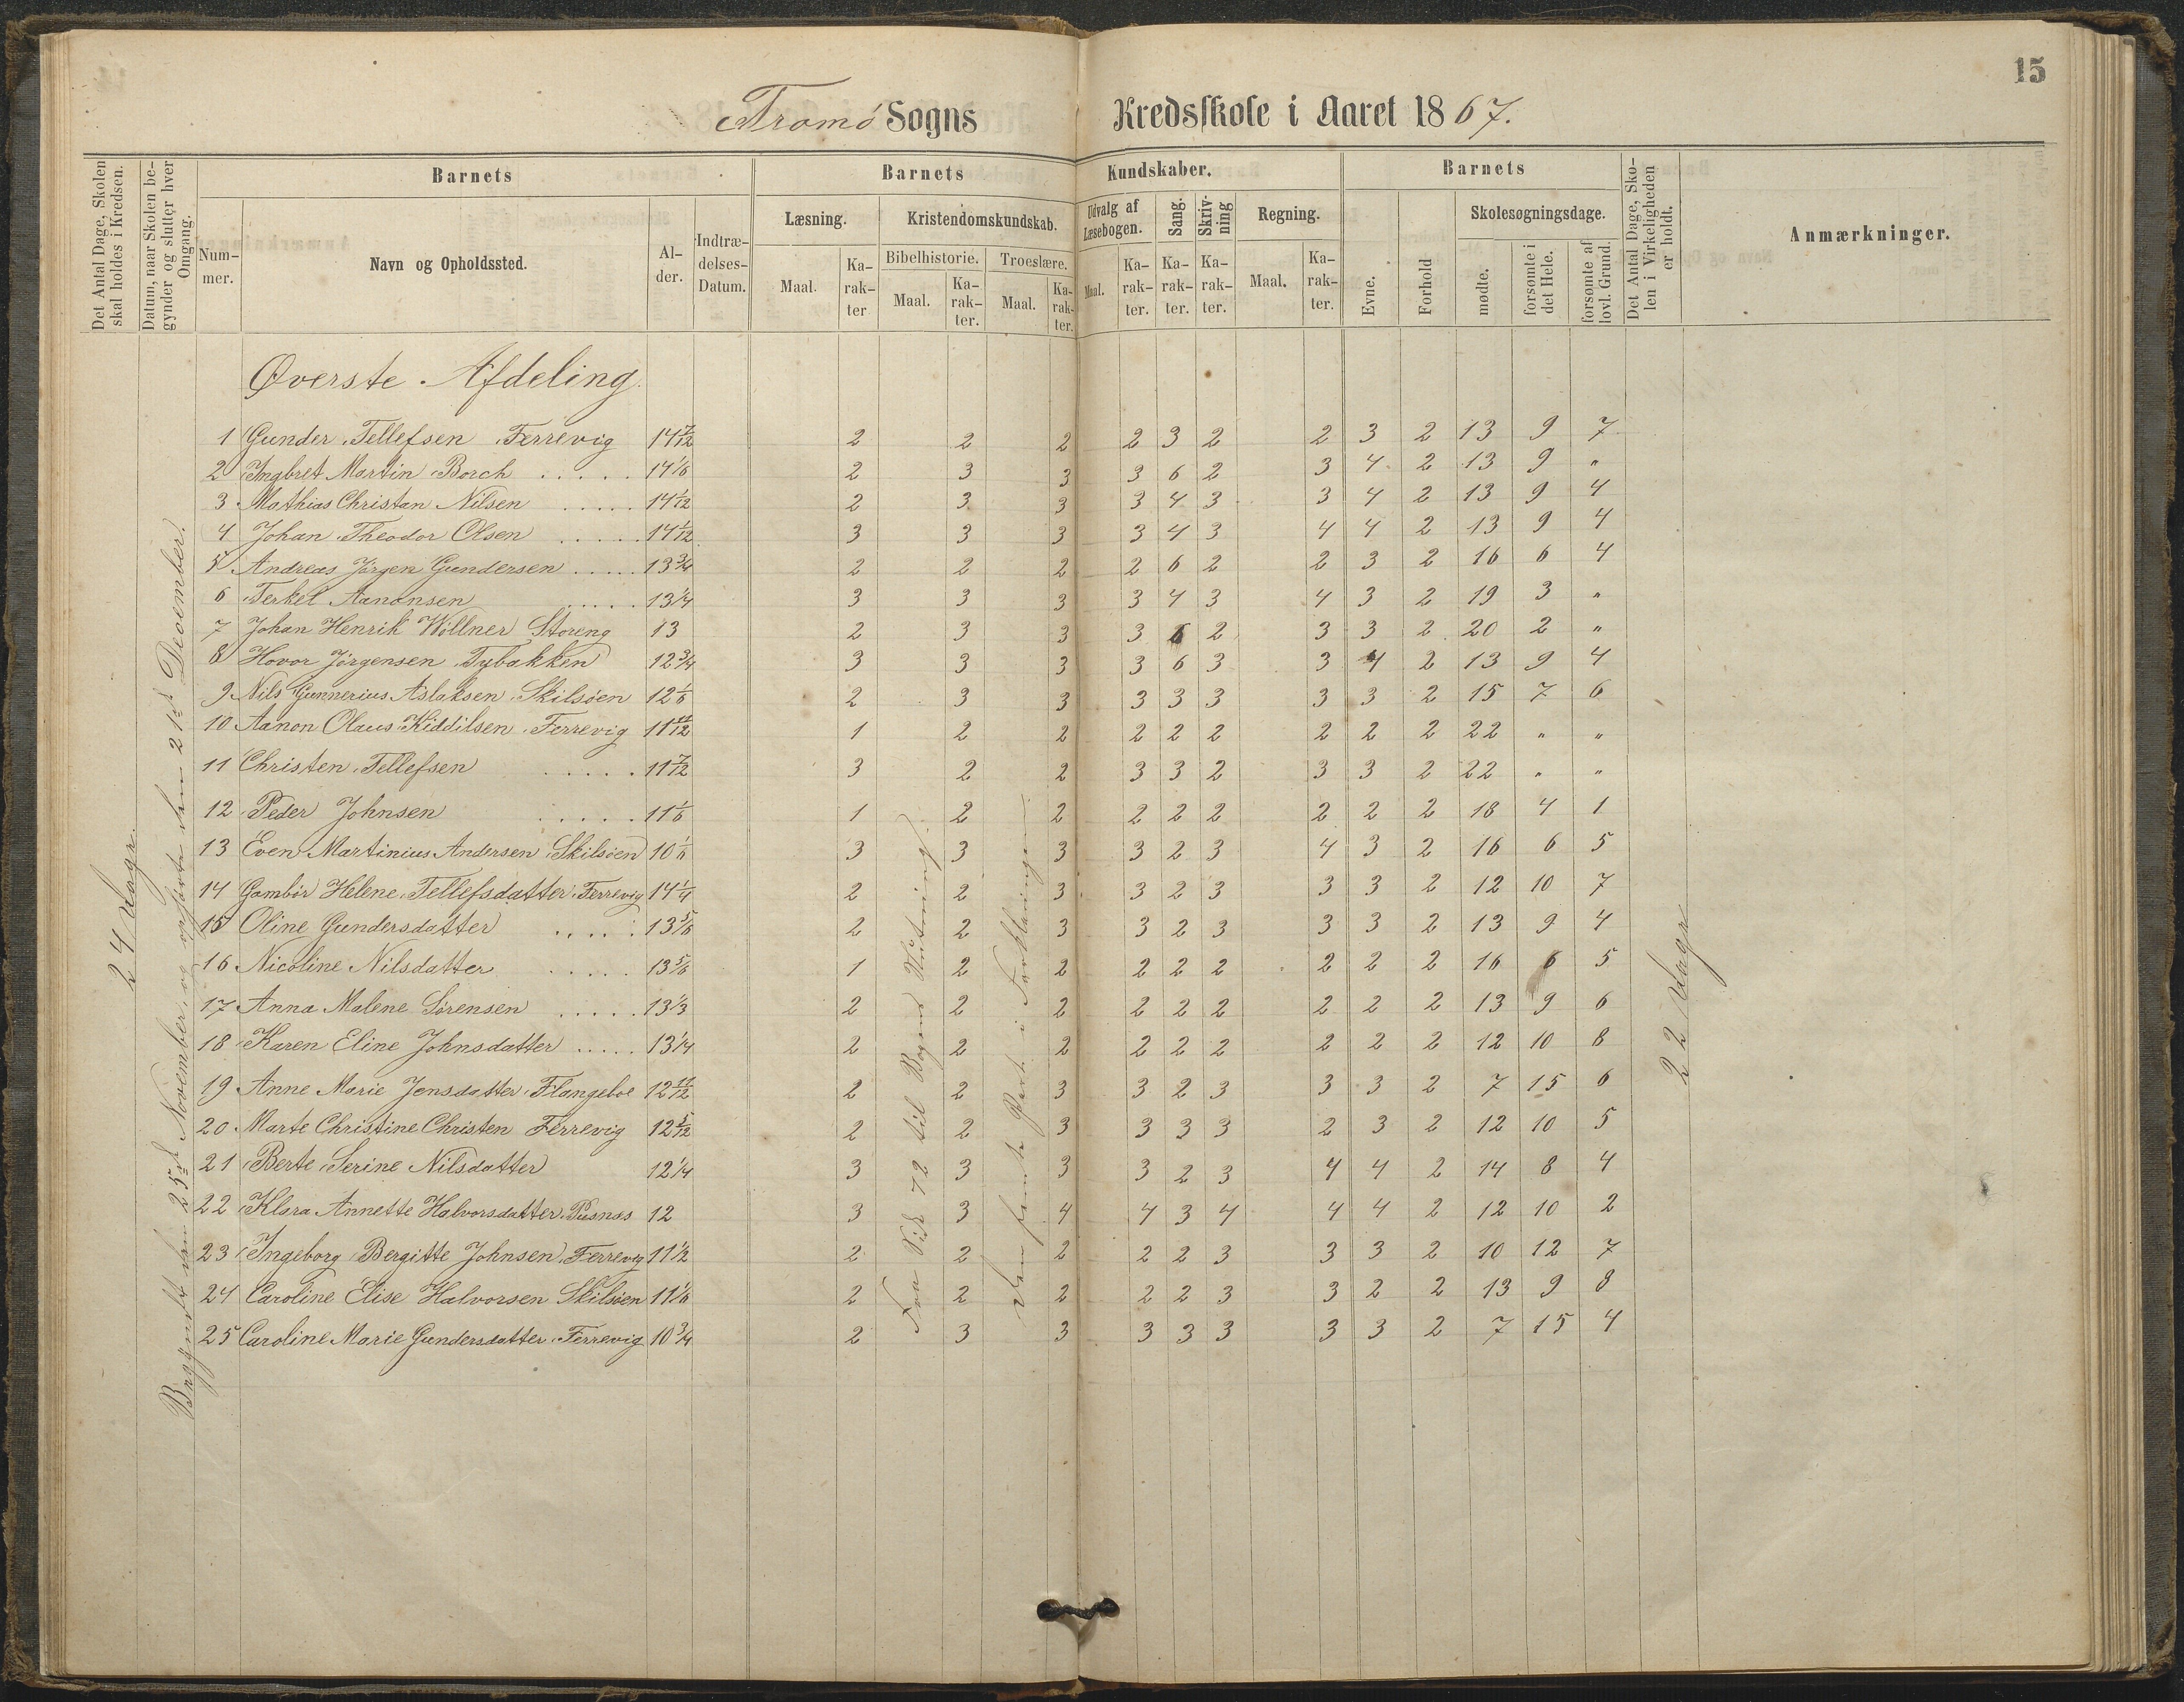 15
Tromö Sogns Kredsskole i Aaret 1867.
Det Antal Dage, Skolen skal holdes i Kredsen.
Datum, naar Skolen begynder og slutter hver Omgang.
Barnets
Nummer.
Navn og Opholdssted.
Alder.
Indtrædelses-Datum.
Barnets Kundskaber.
Læsning.
Maal.
Karakter
Kristendomskundskab.
Bibelhistorie.
Maal.
Karakter.
Troeslære.
Maal.
Karakter.
Udvalg af Læsebogen.
Maal.
Karakter.
Sang.
Karakter.
Skrivning
Karakter.
Regning.
Maal.
Karakter.
Barnets
Evne.
Forhold
Skolesøgningsdage.
mødte.
forsømte i det Hele.
forsømte af lovl. Grund.
Det Antal Dage, Skolen i Virkeligheden er holdt.
Anmærkninger.
Øverste Afdeling.
24 Dage.
Begyndt den 25de November, og opførte den 21de December.
1 Gunder Tellefsen Færrevig 14 7/12 2 2 2 2 3 2 2 3 2 13 9 7
2 Ingbret Martin Borch . . . . . 14 1/6 2 3 3 3 6 2 3 4 2 13 9 "
3 Mathias Christan Nilsen . . . . . 14 1/12 2 3 3 3 4 3 3 4 2 13 9 4
4 Johan Theodor Olsen . . . . . 14 1/12 3 3 3 3 4 3 4 4 2 13 9 4
5 Andreas Jörgen Gundersen . . . . . 13 3/4 2 2 2 2 6 2 2 3 2 16 6 4
6 Terkel Aanonsen . . . . . 13 1/4 3 3 3 3 4 3 4 3 2 19 3 "
7 Johan Henrik Wöllner Storeng 13 2 3 3 3 6 2 3 3 2 20 2 "
8 Hovor Jörgensen Tybakken 12 3/4 3 3 3 3 6 3 3 4 2 13 9 4
9 Nils Gunnerius Aslaksen Skilsöen 12 1/6 2 3 3 3 3 3 3 3 2 15 7 6
10 Aanon Olaus Kiddilsen Færrevig 11 11/12 1 2 2 2 2 2 2 2 2 22 " "
11 Christen Tellefsen . . . . . 11 7/12 3 2 2 3 3 2 3 3 2 22 " "
12 Peder Johnsen . . . . . 11 1/6 1 2 2 2 2 2 2 2 2 18 4 1
13 Even Martinius Andersen Skilsöen 10 1/6 3 3 3 3 2 3 4 3 2 16 6 5
14 Gambör Helene Tellefsdatter Færrevig 14 1/4 2 2 3 3 2 3 3 3 2 12 10 7
15 Oline Gundersdatter . . . . . 13 5/6 2 2 3 3 2 3 3 3 2 13 9 4
16 Nicoline Nilsdatter . . . . . 13 5/6 1 2 2 2 2 2 2 2 2 16 6 5
17 Anna Malene Sörensen . . . . . 13 1/3 2 2 2 2 2 2 2 2 2 13 9 6
18 Karen Eline Johnsdatter . . . . . 13 1/4 2 2 2 2 2 2 2 2 2 12 10 8
19 Anne Marie Jensdatter Flangeboe 12 11/12 2 2 3 3 2 3 3 3 2 7 15 6
20 Marte Christine Christen Færrevig 12 5/12 2 2 3 3 3 3 2 3 2 12 10 5
21 Berte Serine Nilsdatter 12 1/4 3 3 3 3 2 3 4 4 2 14 8 4
22 Klara Annette Halvorsdatter Pusnæs 12 3 3 4 4 3 4 4 4 2 12 10 2
23 Ingeborg Bergitte Johnsen Færrevig 11 1/2 2 2 2 2 2 3 3 3 2 10 12 7
24 Caroline Elise Halvorsen Skilsöen 11 1/6 2 2 2 2 2 3 3 2 2 13 9 8
25 Caroline Marie Gundersdatter Færrevig 10 3/4 2 3 3 3 3 3 3 3 2 7 15 4
Fra Side 72 til Bogens Slutning.
Den femte Part i Forklaringen.
22 Dage